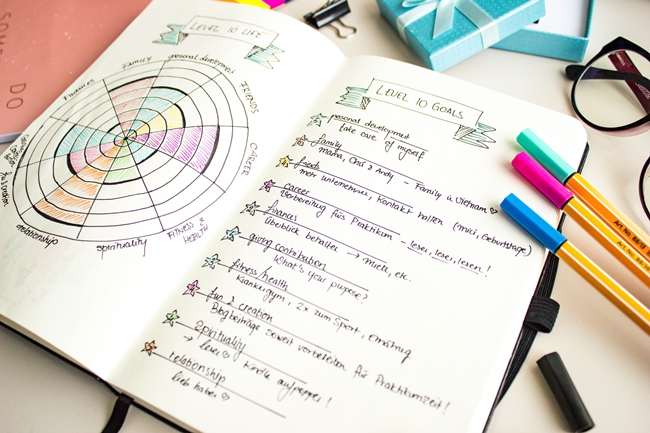 LEVEL 10 LIFE
FAMILY
personal development
FRIENDS
CAREER
FINANCES
FITNESS & HEALTH
spirituality
relationship
DO
LEVEL 10 GOALS
personal development
take care of myself
family
mama, Cha & Andy - Family in Vietnam
foods
mehr unternehmen, Kontakt halten (mici, Geburtstage)
career
Vorbereitung fürs Praktikum - lesen, lesen, lesen!
finances
Überblick behalten → Miete, etc.
giving contribution
What's your purpose?
fitness/health
gym, 2x zum Sport, Ernährung
fun & creation
Blogbeiträge soweit vorbereiten für Praktikumszeit!
Spirituality
→ lesen Kindle aufpeppen!
relationship
lieb haben